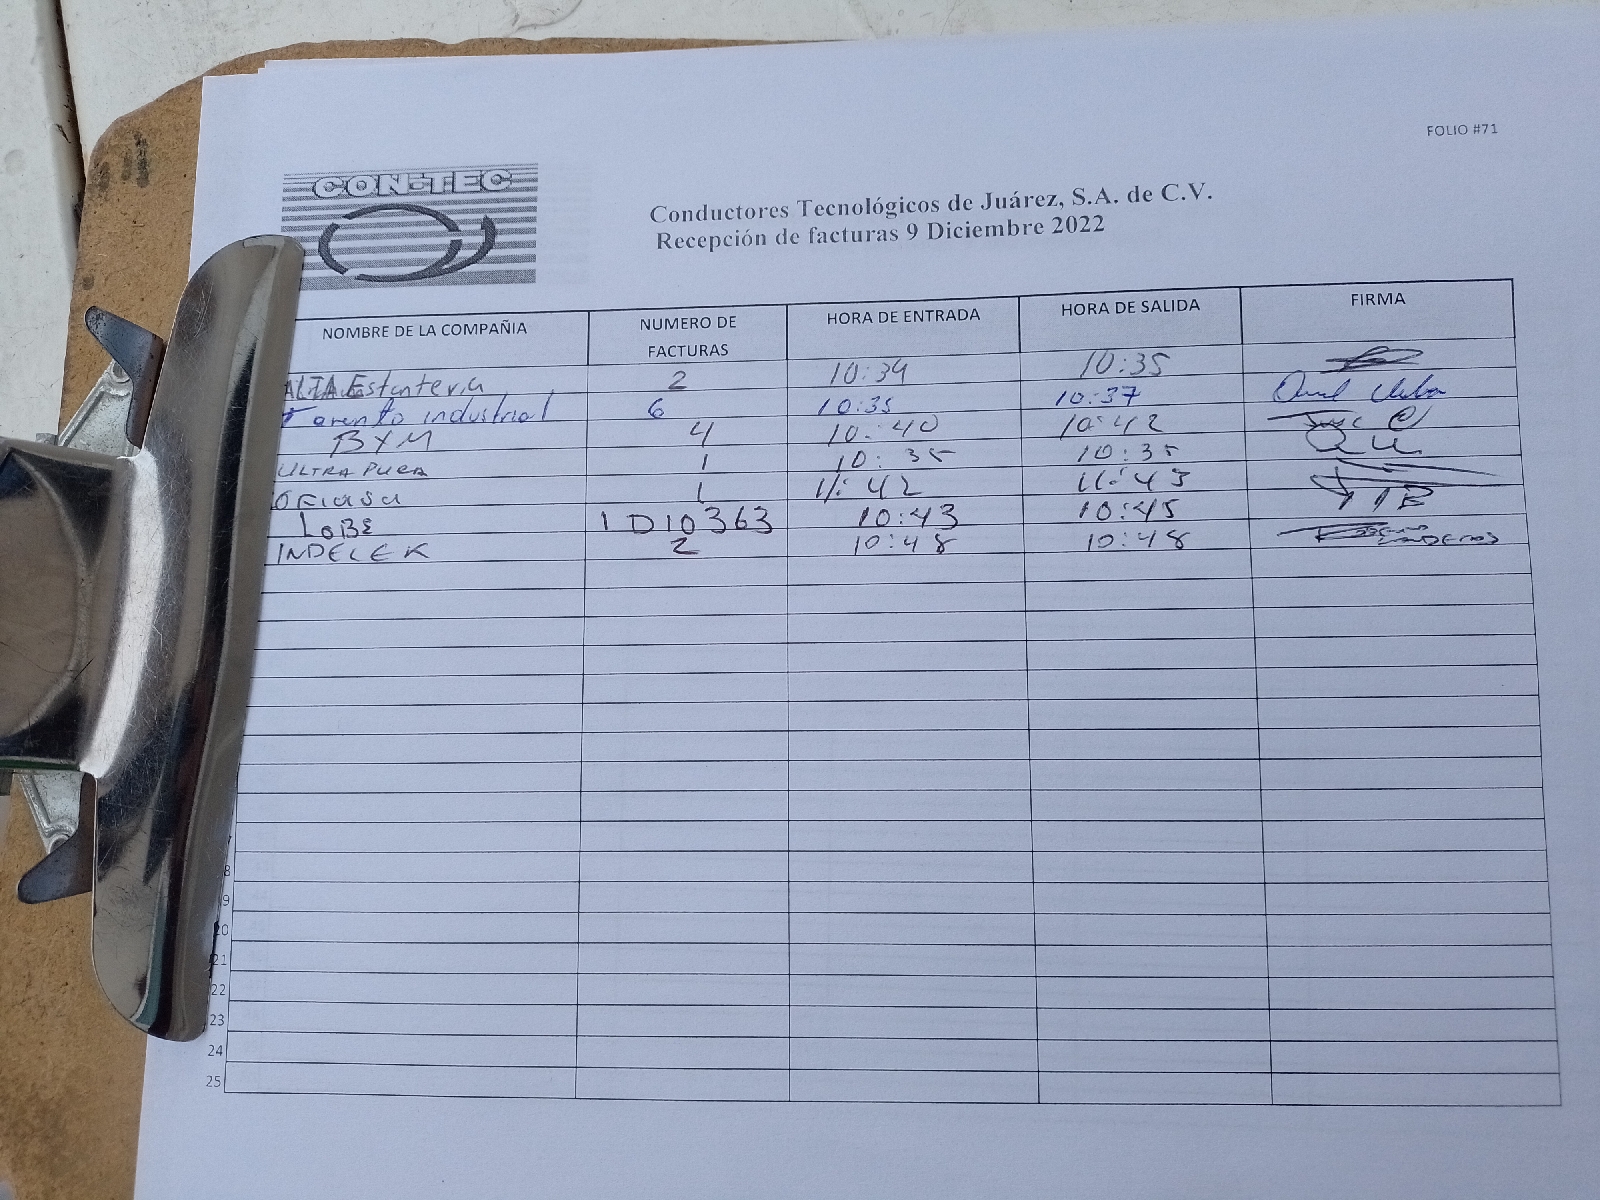 FOLIO #71
CON-TEC
Conductores Tecnológicos de Juárez, S.A. de C.V.
Recepción de facturas 9 Diciembre 2022
NOMBRE DE LA COMPAÑIA NUMERO DE FACTURAS HORA DE ENTRADA HORA DE SALIDA FIRMA
ALTA Estanteria 2 10:34 10:35
industrial 6 10:35 10:37
BYM 4 10:40 10:42
ULTRA PURA 1 10:35 10:35
OFIASA 1 11:42 11:43
LOBE 1 D10363 10:43 10:45
INDELEK 2 10:48 10:48
8
9
20
21
22
23
24
25